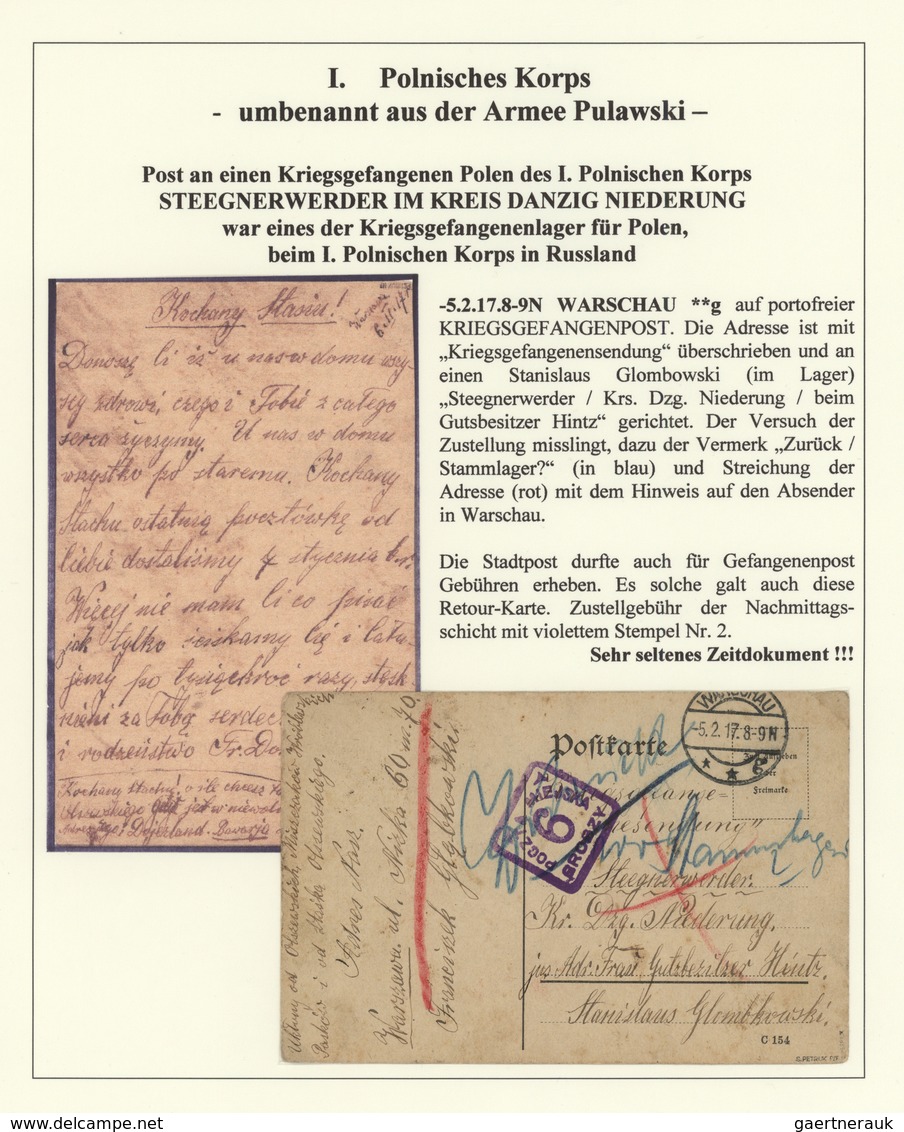 I. Polnisches Korps
- umbenannt aus der Armee Pulawski –
Post an einen Kriegsgefangenen Polen des I. Polnischen Korps
STEEGNERWERDER IM KREIS DANZIG NIEDERUNG
war eines der Kriegsgefangenenlager für Polen,
beim I. Polnischen Korps in Russland
-5.2.17.8-9N WARSCHAU **g auf portofreier
KRIEGSGEFANGENPOST. Die Adresse ist mit
„Kriegsgefangenensendung“ überschrieben und an
einen Stanislaus Glombowski (im Lager)
„Steegnerwerder / Krs. Dzg. Niederung / beim
Gutsbesitzer Hintz“ gerichtet. Der Versuch der
Zustellung misslingt, dazu der Vermerk „Zurück /
Stammlager?“ (in blau) und Streichung der
Adresse (rot) mit dem Hinweis auf den Absender
in Warschau.
Die Stadtpost durfte auch für Gefangenenpost
Gebühren erheben. Es solche galt auch diese
Retour-Karte. Zustellgebühr der Nachmittags-
schicht mit violettem Stempel Nr. 2.
Sehr seltenes Zeitdokument !!!
Kochany Stasiu!
Donoszę Ci iż u nas w domu wszy-
scy zdrowi, czego i Tobie z całego
serca życzymy. U nas w domu
wszystko po staremu. Kochany
Stachu ostatnią pocztówkę od
Ciebie dostaliśmy 7 stycznia b.r.
Więcej nie mam Ci co pisać
jak tylko ściskamy Cię i cału-
jemy po tysiąckroć razy, stęsk-
nieni za Tobą serdec
i rodzeństwo Fr.
Kochany Stachu! o ile chcesz
jest w niewol
Bajerland. Bawarja
Adres Nasz.
Warszawa ul. Niska 60 m 70.
Franciszek Głąbkowski
Postkarte
WARSCHAU
-5.2.17.8-9N
* * g
Freimarke
POCZTA MIEJSKA
6
GROSZY
Zurück
Stammlager
Steegnerwerder.
Kr. Dzg. Niederung.
Adr. Frau Gutzbezitzer Hintz.
Stanislaus Glombkowski.
C 154
gaertnerauk